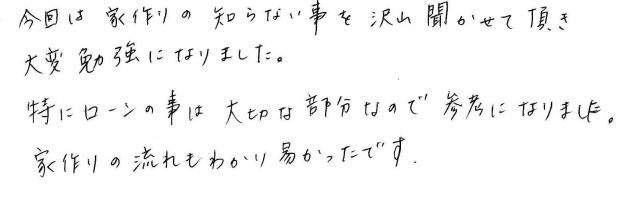 今回は家作りの知らない事を沢山聞かせて頂き
大変勉強になりました。
特にローンの事は大切な部分なので参考になりました。
家作りの流れもわかり易かったです.